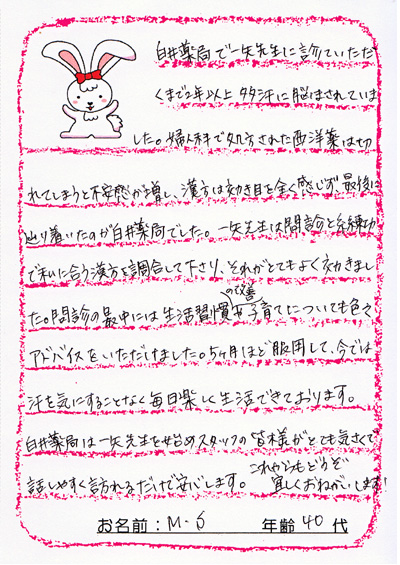 白井薬局で一矢先生に診ていただ
くまで2年以上 多汗に悩まされていま
した。婦人科で処方された西洋薬は切
れてしまうと不安感が増し、漢方は効き目を全く感じず、最後に
辿り着いたのが白井薬局でした。一矢先生は問診と糸練功
で私に合う漢方を調合して下さり、それがとてもよく効きまし
た。問診の最中には生活習慣の改善や子育てについても色々
アドバイスをいただけました。5ヶ月ほど服用して、今では
汗を気にすることなく毎日楽しく生活できております。
白井薬局は一矢先生を始めスタッフの皆様がとても気さくで
話しやすく訪れるだけで安心します。これからもどうぞ
宜しくおねがいします!
お名前:M・S 年齢 40 代